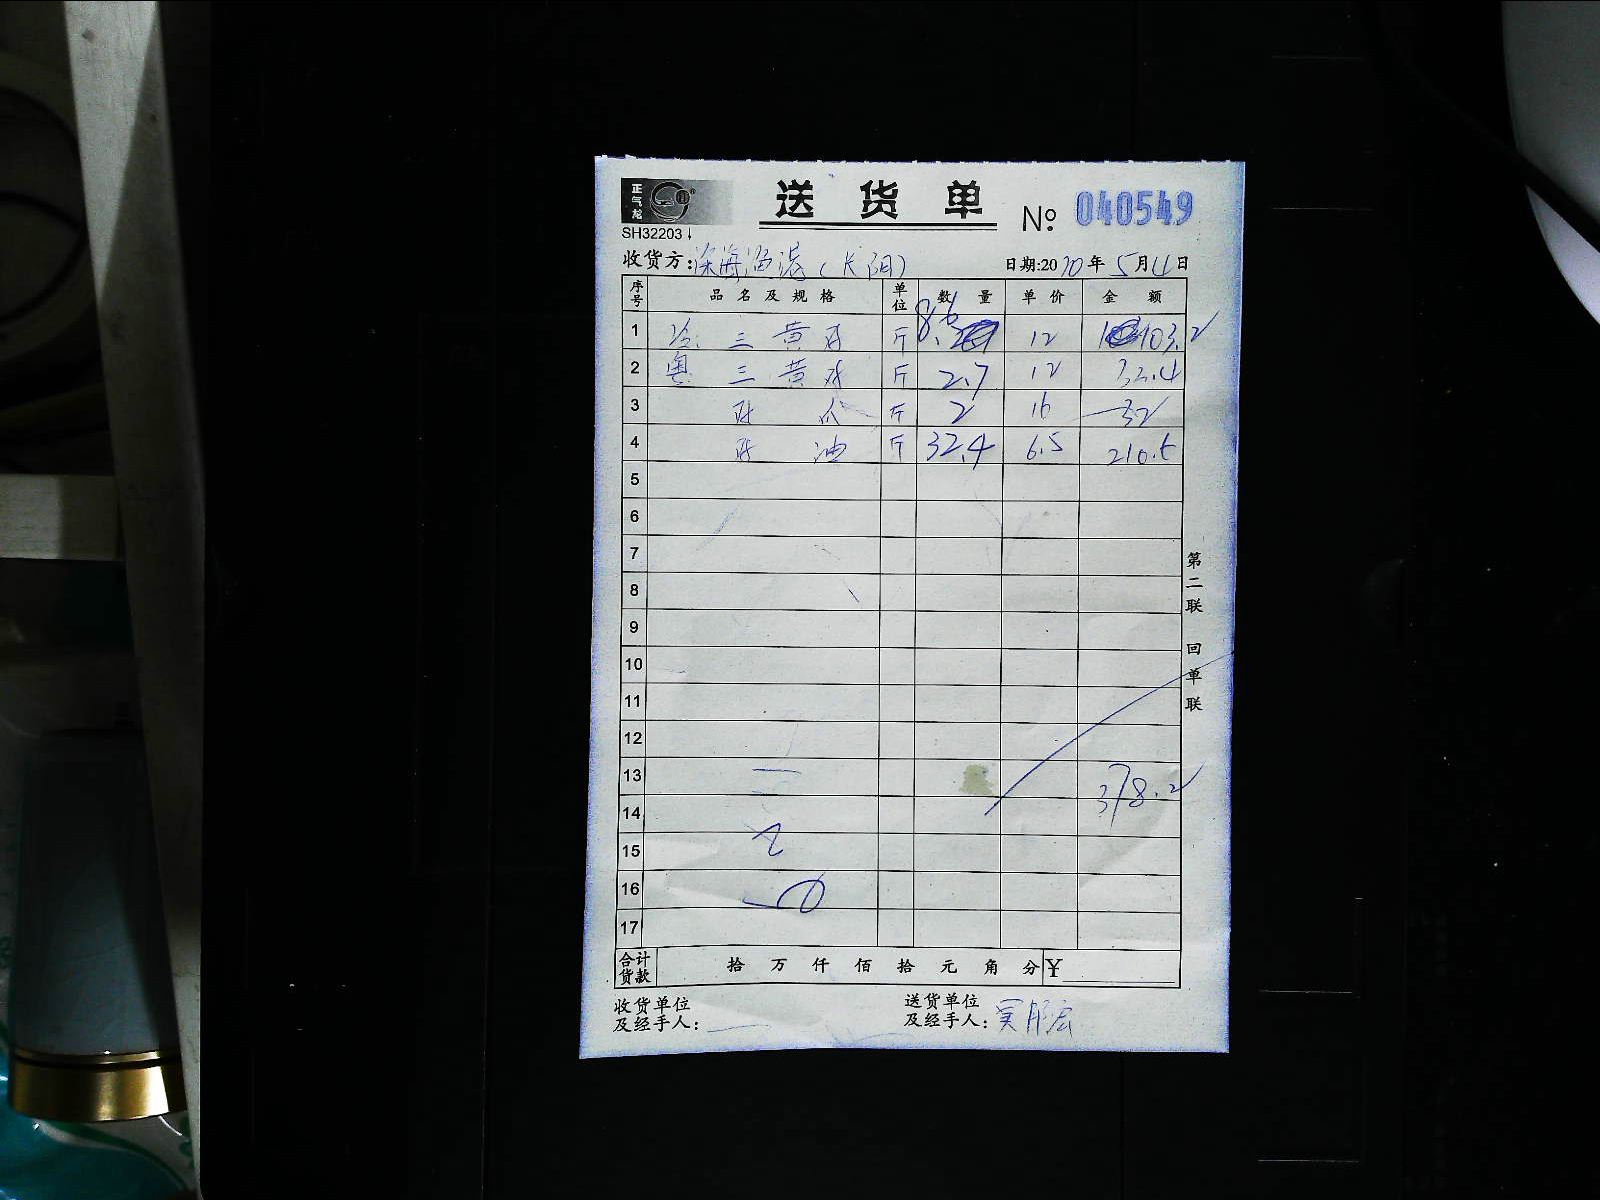 正气龙
送货单
№ 040549
SH32203
收货方:深海渔港(长阳) 日期:2020年5月4日
序号 品名及规格 单位 数量 单价 金额
1 冷 三黄鸡 斤 8.6 12 103.2
2 粤 三黄鸡 斤 2.7 12 32.4
3 鸡爪 斤 2 16 32
4 鸡油 斤 32.4 6.5 210.6
5
6
7
8
9
10
11
12
13 378.2
14
15
16
17
第二联 回单联
合计货款 拾 万 仟 佰 拾 元 角 分 ¥
收货单位及经手人: 送货单位及经手人: